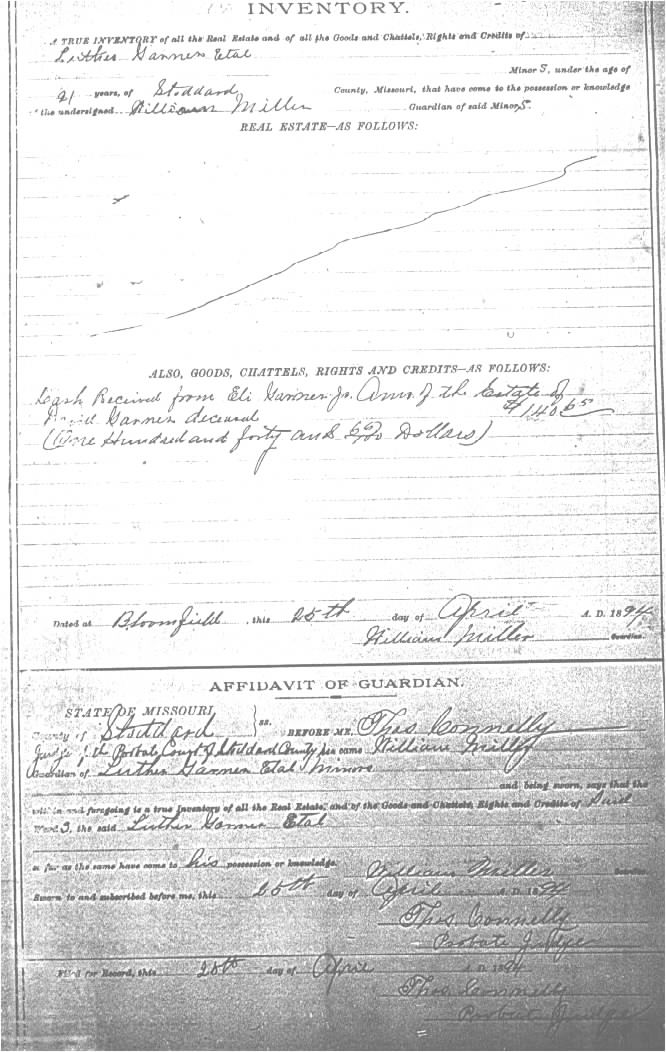 INVENTORY.
A TRUE INVENTORY of all the Real Estate and of all the Goods and Chattels, Rights and Credits of
Luther Garner Etal
Minors, under the age of
21 years, of Stoddard County, Missouri, that have come to the possession or knowledge
the undersigned William Miller Guardian of said Minors.
REAL ESTATE—AS FOLLOWS:
ALSO, GOODS, CHATTELS, RIGHTS AND CREDITS—AS FOLLOWS:
Cash Received from Eli Garner Jr. Amr. of the Estate of
Garner deceased $140 65
(One Hundred and forty and Dollars)
Dated at Bloomfield, this 25th day of April A. D. 1894.
William Miller Guardian.
AFFIDAVIT OF GUARDIAN.
STATE OF MISSOURI,
County of Stoddard } ss. BEFORE ME, Thos Connelly
Judge of the Probate Court of Stoddard County came William Miller
Guardian of Luther Garner Etal Minors
and being sworn, says that the
within and foregoing is a true Inventory of all the Real Estate, and of the Goods and Chattels, Rights and Credits of Said
Wards, the said Luther Garner Etal
so far as the same have come to his possession or knowledge. William Miller Guardian
Sworn to and subscribed before me, this 25th day of April A. D. 1894
Thos Connelly
Probate Judge
Filed for Record, this 25th day of April A. D. 1894
Thos Connelly
Probate Judge